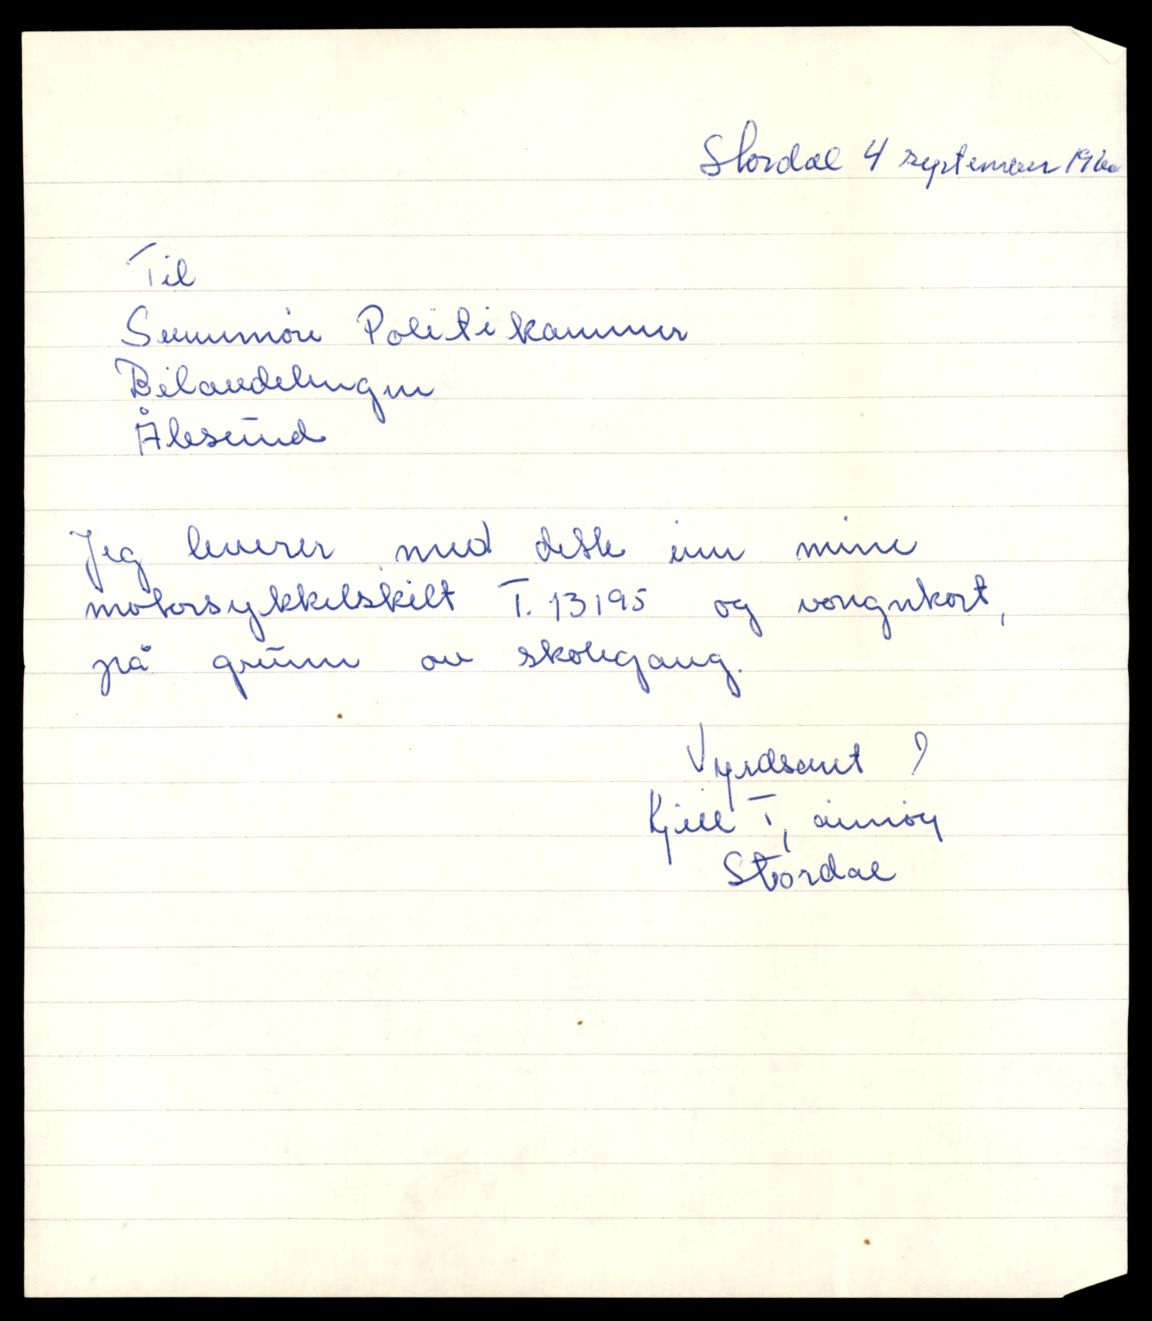 Stordal 4 september 1960
Til
Sunnmøre Politikammer
Bilavdelingen
Ålesund
Jeg leverer med dette inn mine
motorsykkelskilt T. 13195 og vongnkort,
på grunn av skolegang.
Vyrdsamt
Kjell T,
Stordal